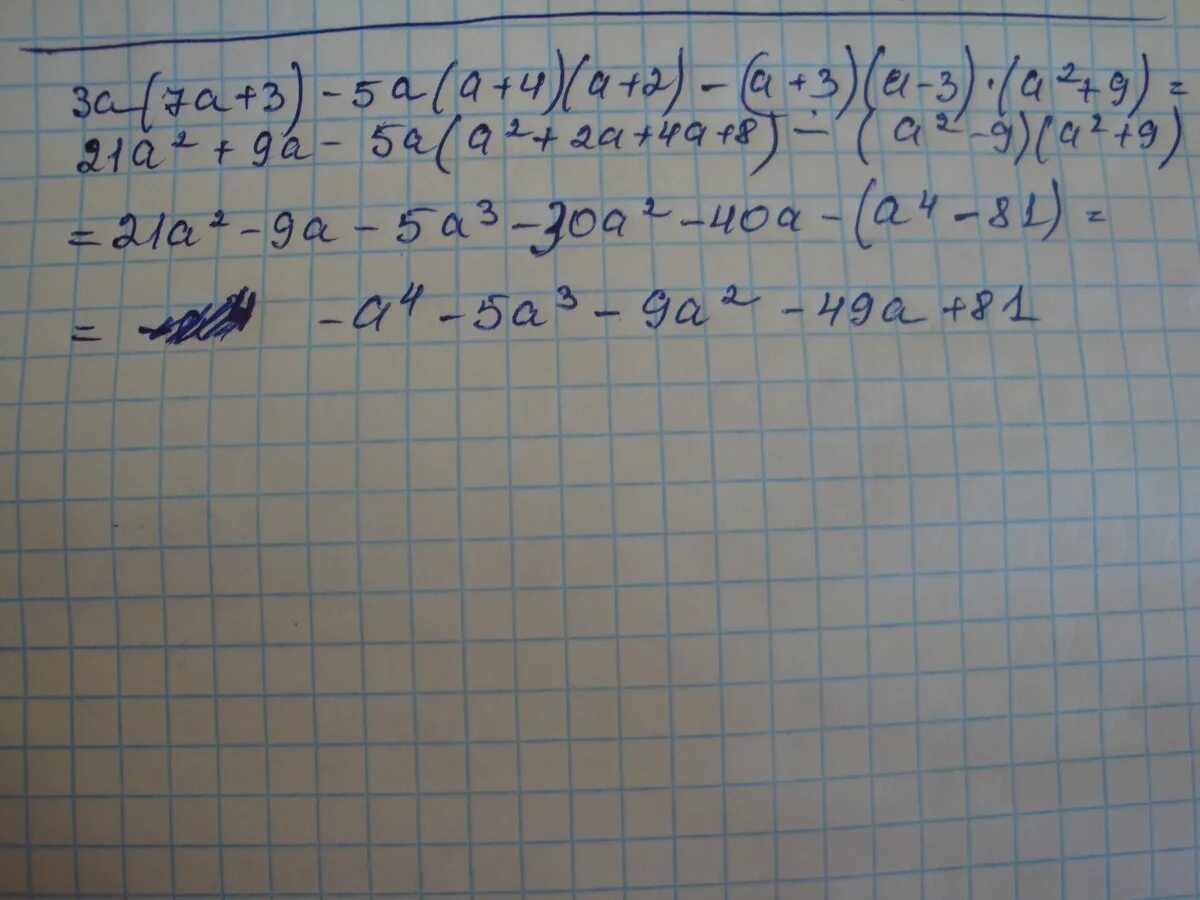 3a(7a+3)-5a(a+4)(a+2)-(a+3)(a-3)·(a²+9)=
21a²+9a-5a(a²+2a+4a+8)-(a²-9)(a²+9)
=21a²-9a-5a³-30a²-40a-(a⁴-81)=
= -a⁴-5a³-9a²-49a+81